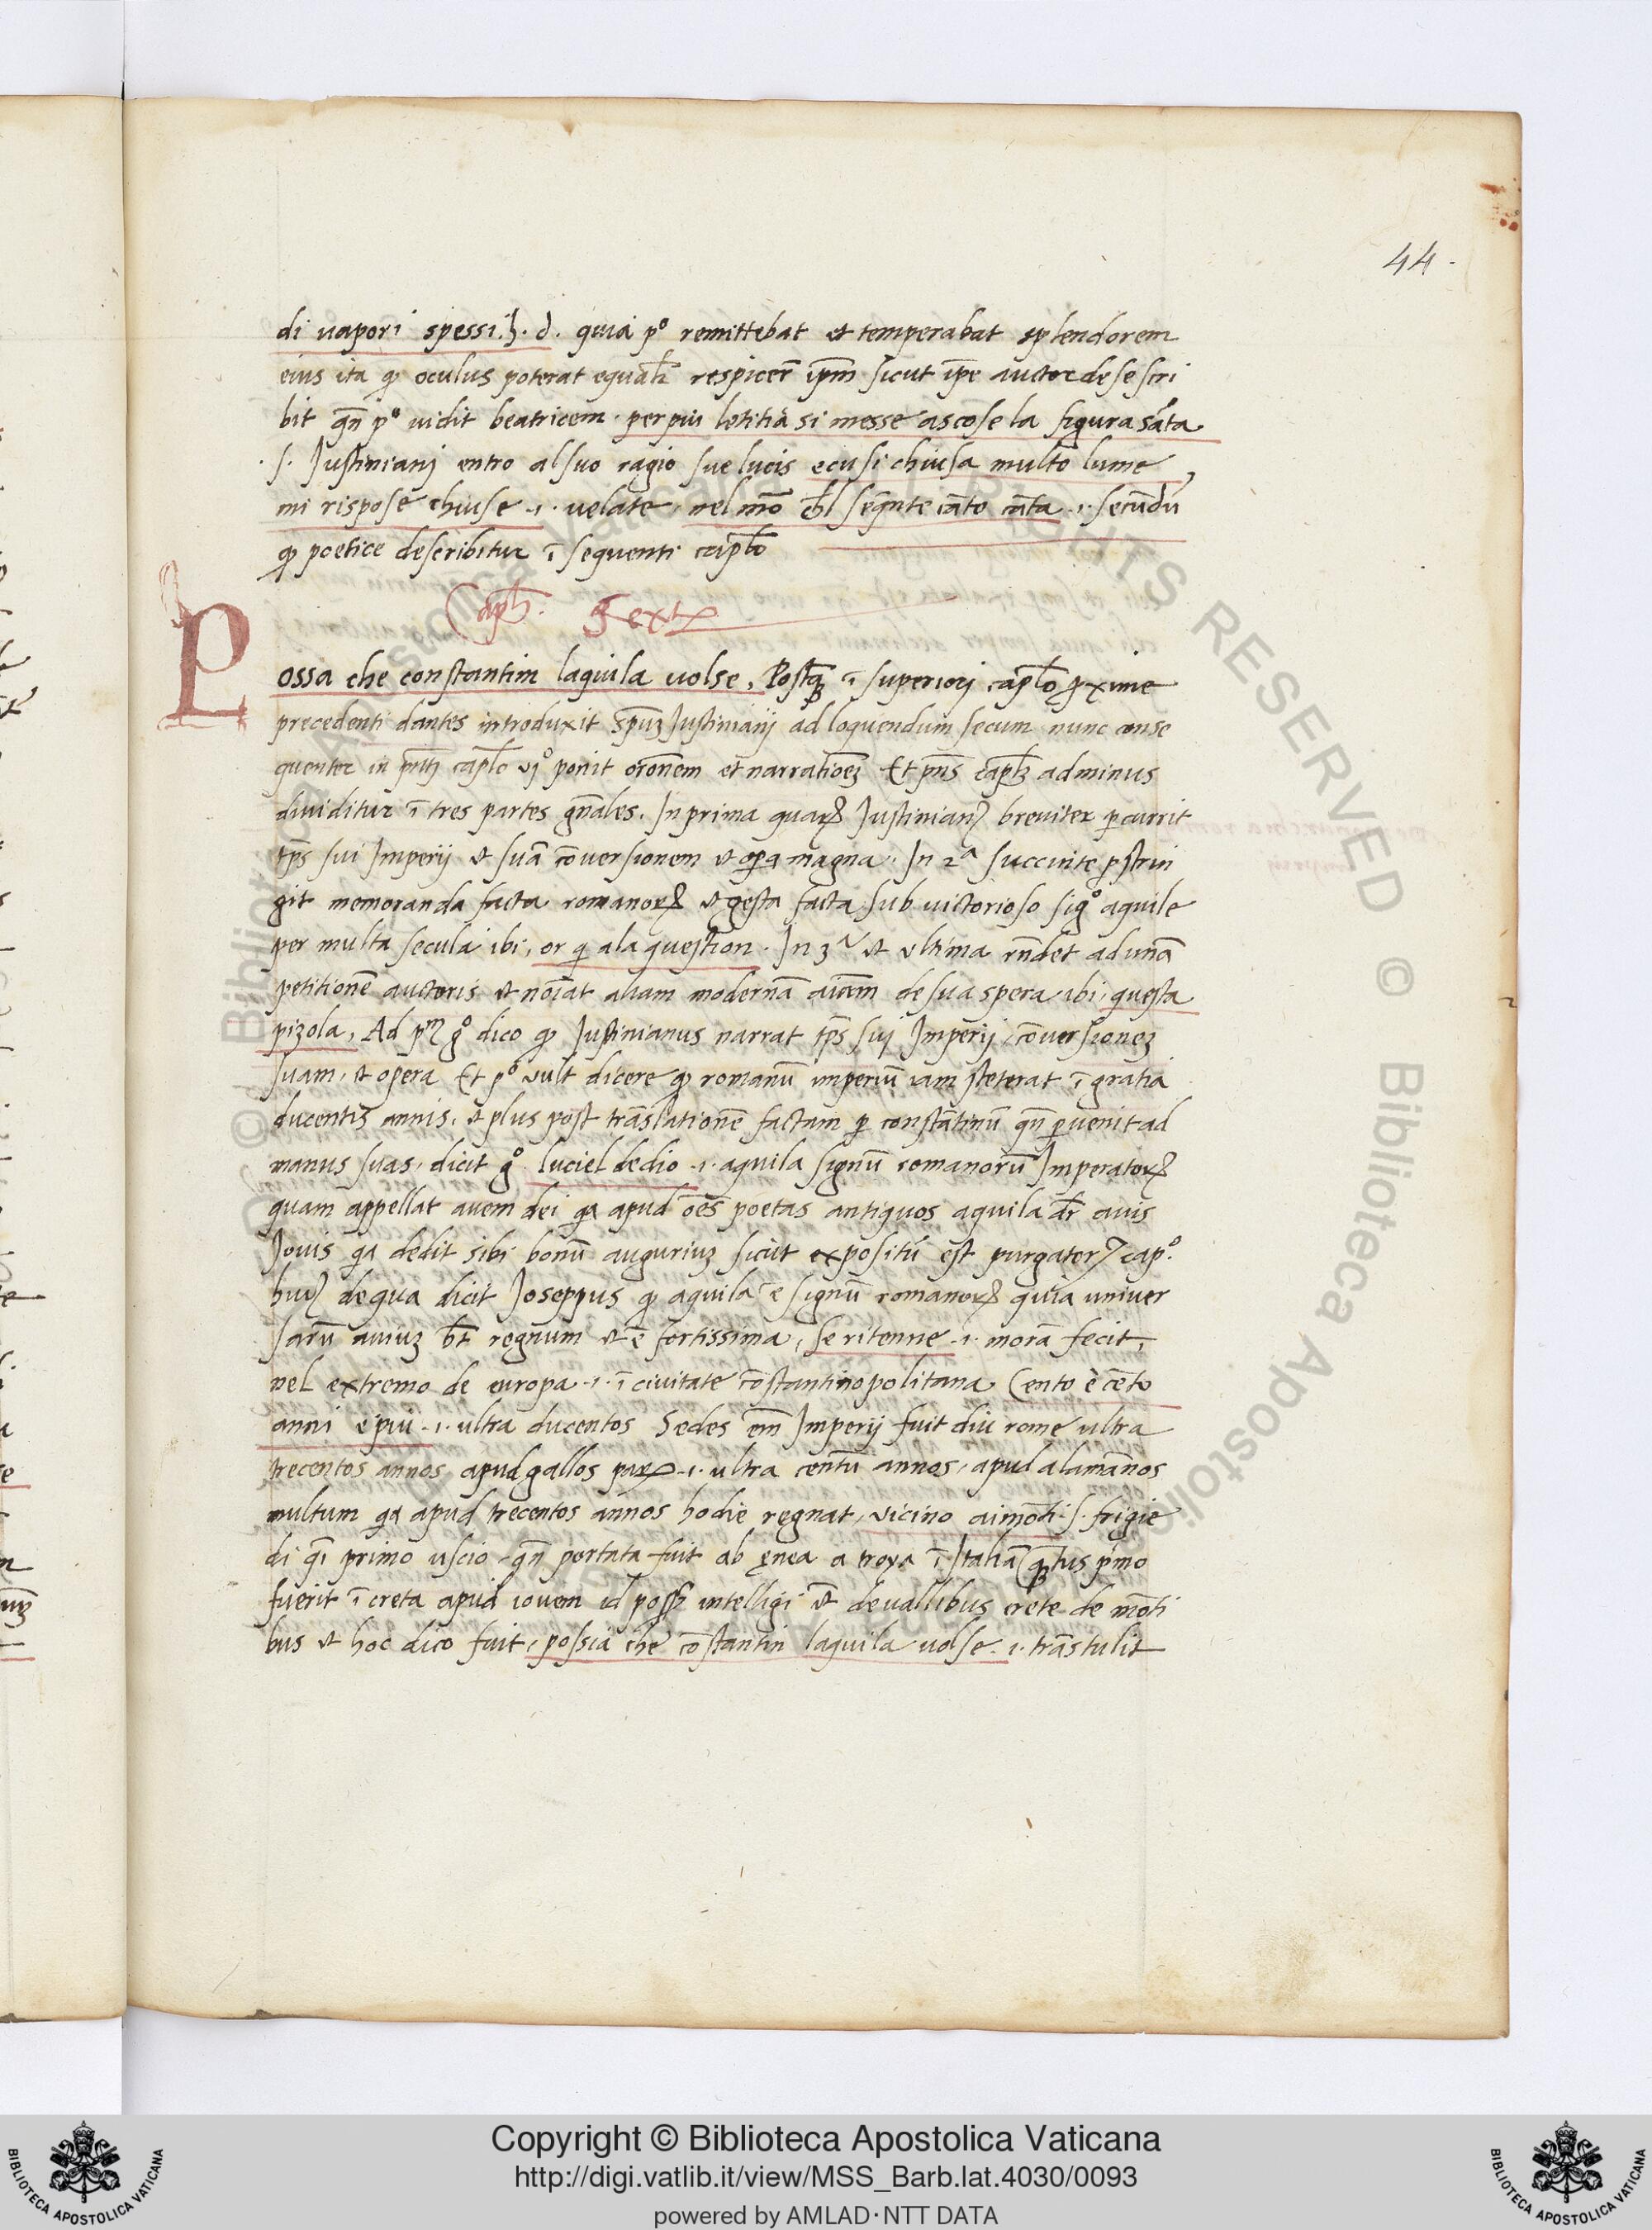 44.
di vapori spessi. h. d. quia p° remittebat et temperabat splendorem
eius ita qđ oculus poterat equalr respicerē ipm̄ sicut ipe auctor de se scri
bit qn̄ p° vidit beatricem. per piu letitia si messe ascose la figura sāta.
.s. Justiniani entro al suo ragio sue lucis e cusi chiusa multo lume
mi rispose chiuse .i. velate, nel mō chel seqn̄te cāto cāta .i. secūdū
qđ poetice describitur ī sequenti caplō
Caplm. Sextum
P
ossa che constantin laquila volse, Postq̄ ī superiori caplō proxime
precedenti dantes introduxit spūz Justiniani ad loquendum secum nunc conse
quenter in pn̄ti caplō vj° ponit oronem et narrationez Et pn̄s caplz ad minus
dividitur ī tres partes gn̄ales. In prima quarum Justinianus breviter percurrit
tp̄s sui Imperij et suā cōversionem et opera magna. In 2ª succinte pstrin
git memoranda facta romanorum et gesta facta sub victorioso sig° aquile
per multa secula ibi, or qi a la question. In 3ª et ultima rn̄det ad unā
petitionē auctoris et noīat aliam modernā aīam de sua spera ibi, questa
pizola, Ad pm g° dico qđ Justinianus narrat tp̄s sui Imperij, cōversionez
suam, et opera Et p° vult dicere qđ romanū imperiū iam steterat ī gratia
ducentis annis, et plus post trāslationē factam per constātinū qn̄ pervenit ad
manus suas, dicit g° luciel de dio .i. aquila signū romanorū Imperatorum
quam appellat avem dei qa apud oēs poetas antiquos aquila dr̄ avis
Jovis qa dedit sibi bonū auguriuz sicut expositū est purgatorij cap.°
huius de qua dicit Joseppus qđ aquila ē signū romanorum quia univer
sarū aviuz ht̄ regnum et ē fortissima, se ritenne .i. morā fecit,
nel extremo de europa .i. ī civitate cōstantinopolitana Cento è cēto
anni e piu .i. ultra ducentos Sedes em̄ Imperij fuit diu rome ultra
trecentos annos apud gallos parum .i. ultra centū annos, apud alamānos
multum qa apud trecentos annos hodie regnat, vicino ai mōti .s. frigie
di qi primo uscio, qn̄ portata fuit ab enea a troya ī Italiā quātus p̄mo
fuerit ī creta apud iovem id possz intelligi et de vallibus crete de mōti
bus et hoc dico fuit, possia che cōstantin laquila volse .i. trāstulit
Copyright © Biblioteca Apostolica Vaticana
http://digi.vatlib.it/view/MSS_Barb.lat.4030/0093
powered by AMLAD·NTT DATA
BIBLIOTECA APOSTOLICA VATICANA
BIBLIOTECA APOSTOLICA VATICANA